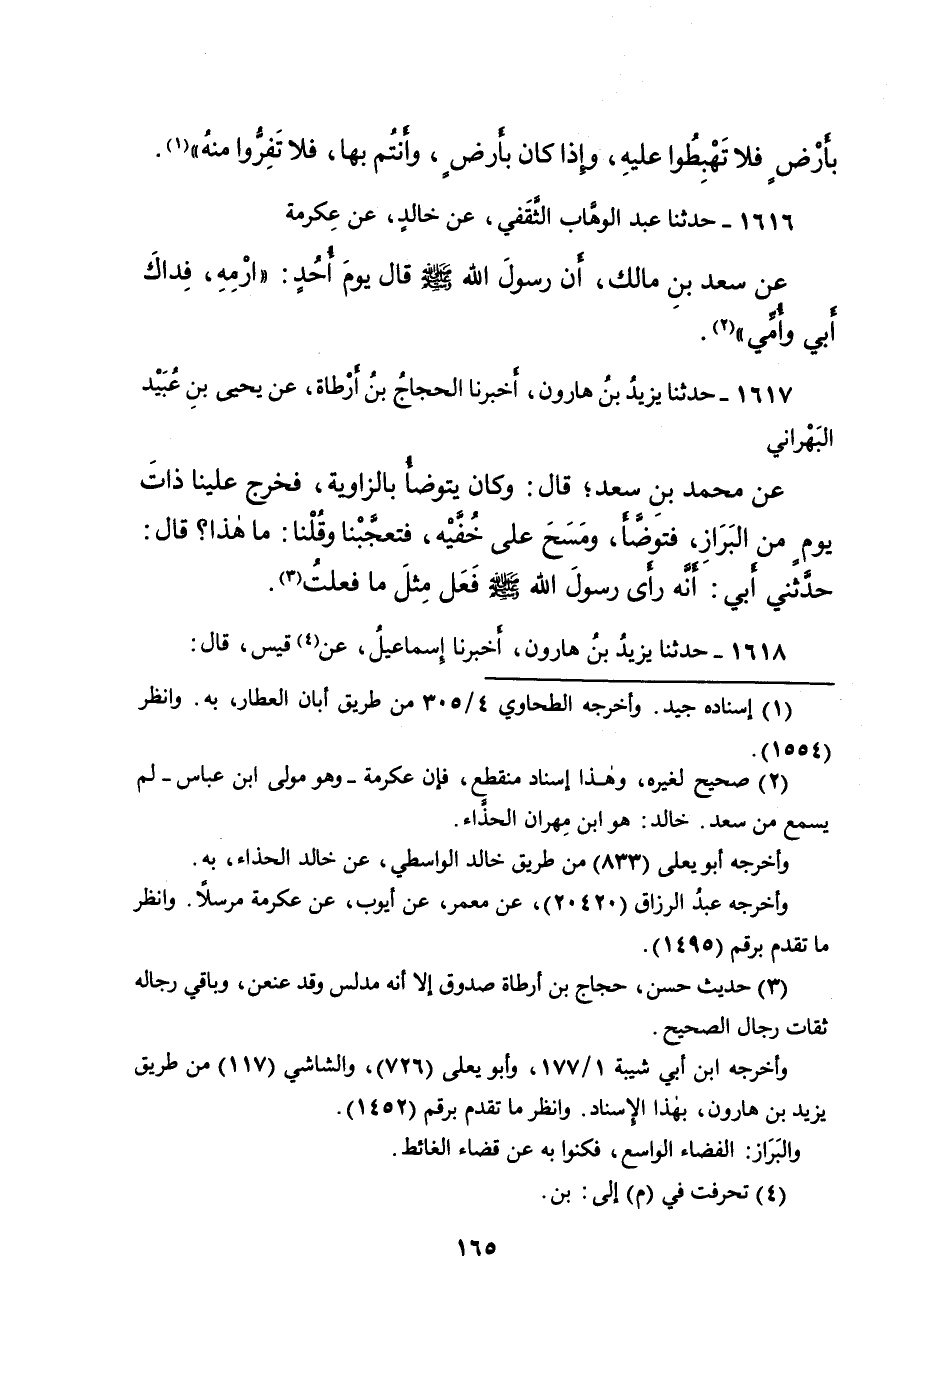 بأَرْضٍ فلا تَهْبِطُوا عليهِ، وإِذا كان بأَرضٍ، وأَنتُم بها، فلا تَفِرُّوا منهُ»(١).
١٦١٦ ـ حدثنا عبد الوهَّاب الثَّقَفي، عن خالدٍ، عن عِكرمة
عن سعد بنِ مالك، أَن رسولَ الله ﷺ قال يومَ أُحُدٍ: «ارْمِهِ، فِداكَ
أَبي وأُمِّي»(٢).
١٦١٧ ـ حدثنا يزيدُ بنُ هارون، أَخبرنا الحجاجُ بنُ أَرْطاة، عن يحيى بنِ عُبَيْد
البَهْراني
عن محمد بنِ سعد؛ قال: وكان يتوضأُ بالزاوية، فخرج علينا ذاتَ
يومٍ من البَرَازِ، فتوَضَّأَ، ومَسَحَ على خُفَّيْه، فتعجَّبْنا وقُلْنا: ما هٰذا؟ قال:
حدَّثني أَبي: أَنَّه رأَى رسولَ الله ﷺ فَعَل مِثلَ ما فعلتُ(٣).
١٦١٨ ـ حدثنا يزيدُ بنُ هارون، أَخبرنا إِسماعيلُ، عن(٤) قيس، قال:
(١) إسناده جيد. وأخرجه الطحاوي ٣٠٥/٤ من طريق أبان العطار، به. وانظر
(١٥٥٤).
(٢) صحيح لغيره، وهٰذا إسناد منقطع، فإن عكرمة ـ وهو مولى ابن عباس ـ لم
يسمع من سعد. خالد: هو ابن مِهران الحذَّاء.
وأخرجه أبو يعلى (٨٣٣) من طريق خالد الواسطي، عن خالد الحذاء، به.
وأخرجه عبدُ الرزاق (٢٠٤٢٠)، عن معمر، عن أيوب، عن عكرمة مرسلاً. وانظر
ما تقدم برقم (١٤٩٥).
(٣) حديث حسن، حجاج بن أرطاة صدوق إلا أنه مدلس وقد عنعن، وباقي رجاله
ثقات رجال الصحيح.
وأخرجه ابن أبي شيبة ١٧٧/١، وأبو يعلى (٧٢٦)، والشاشي (١١٧) من طريق
يزيد بن هارون، بهٰذا الإسناد. وانظر ما تقدم برقم (١٤٥٢).
والبَرَاز: الفضاء الواسع، فكنوا به عن قضاء الغائط.
(٤) تحرفت في (م) إلى: بن.
١٦٥